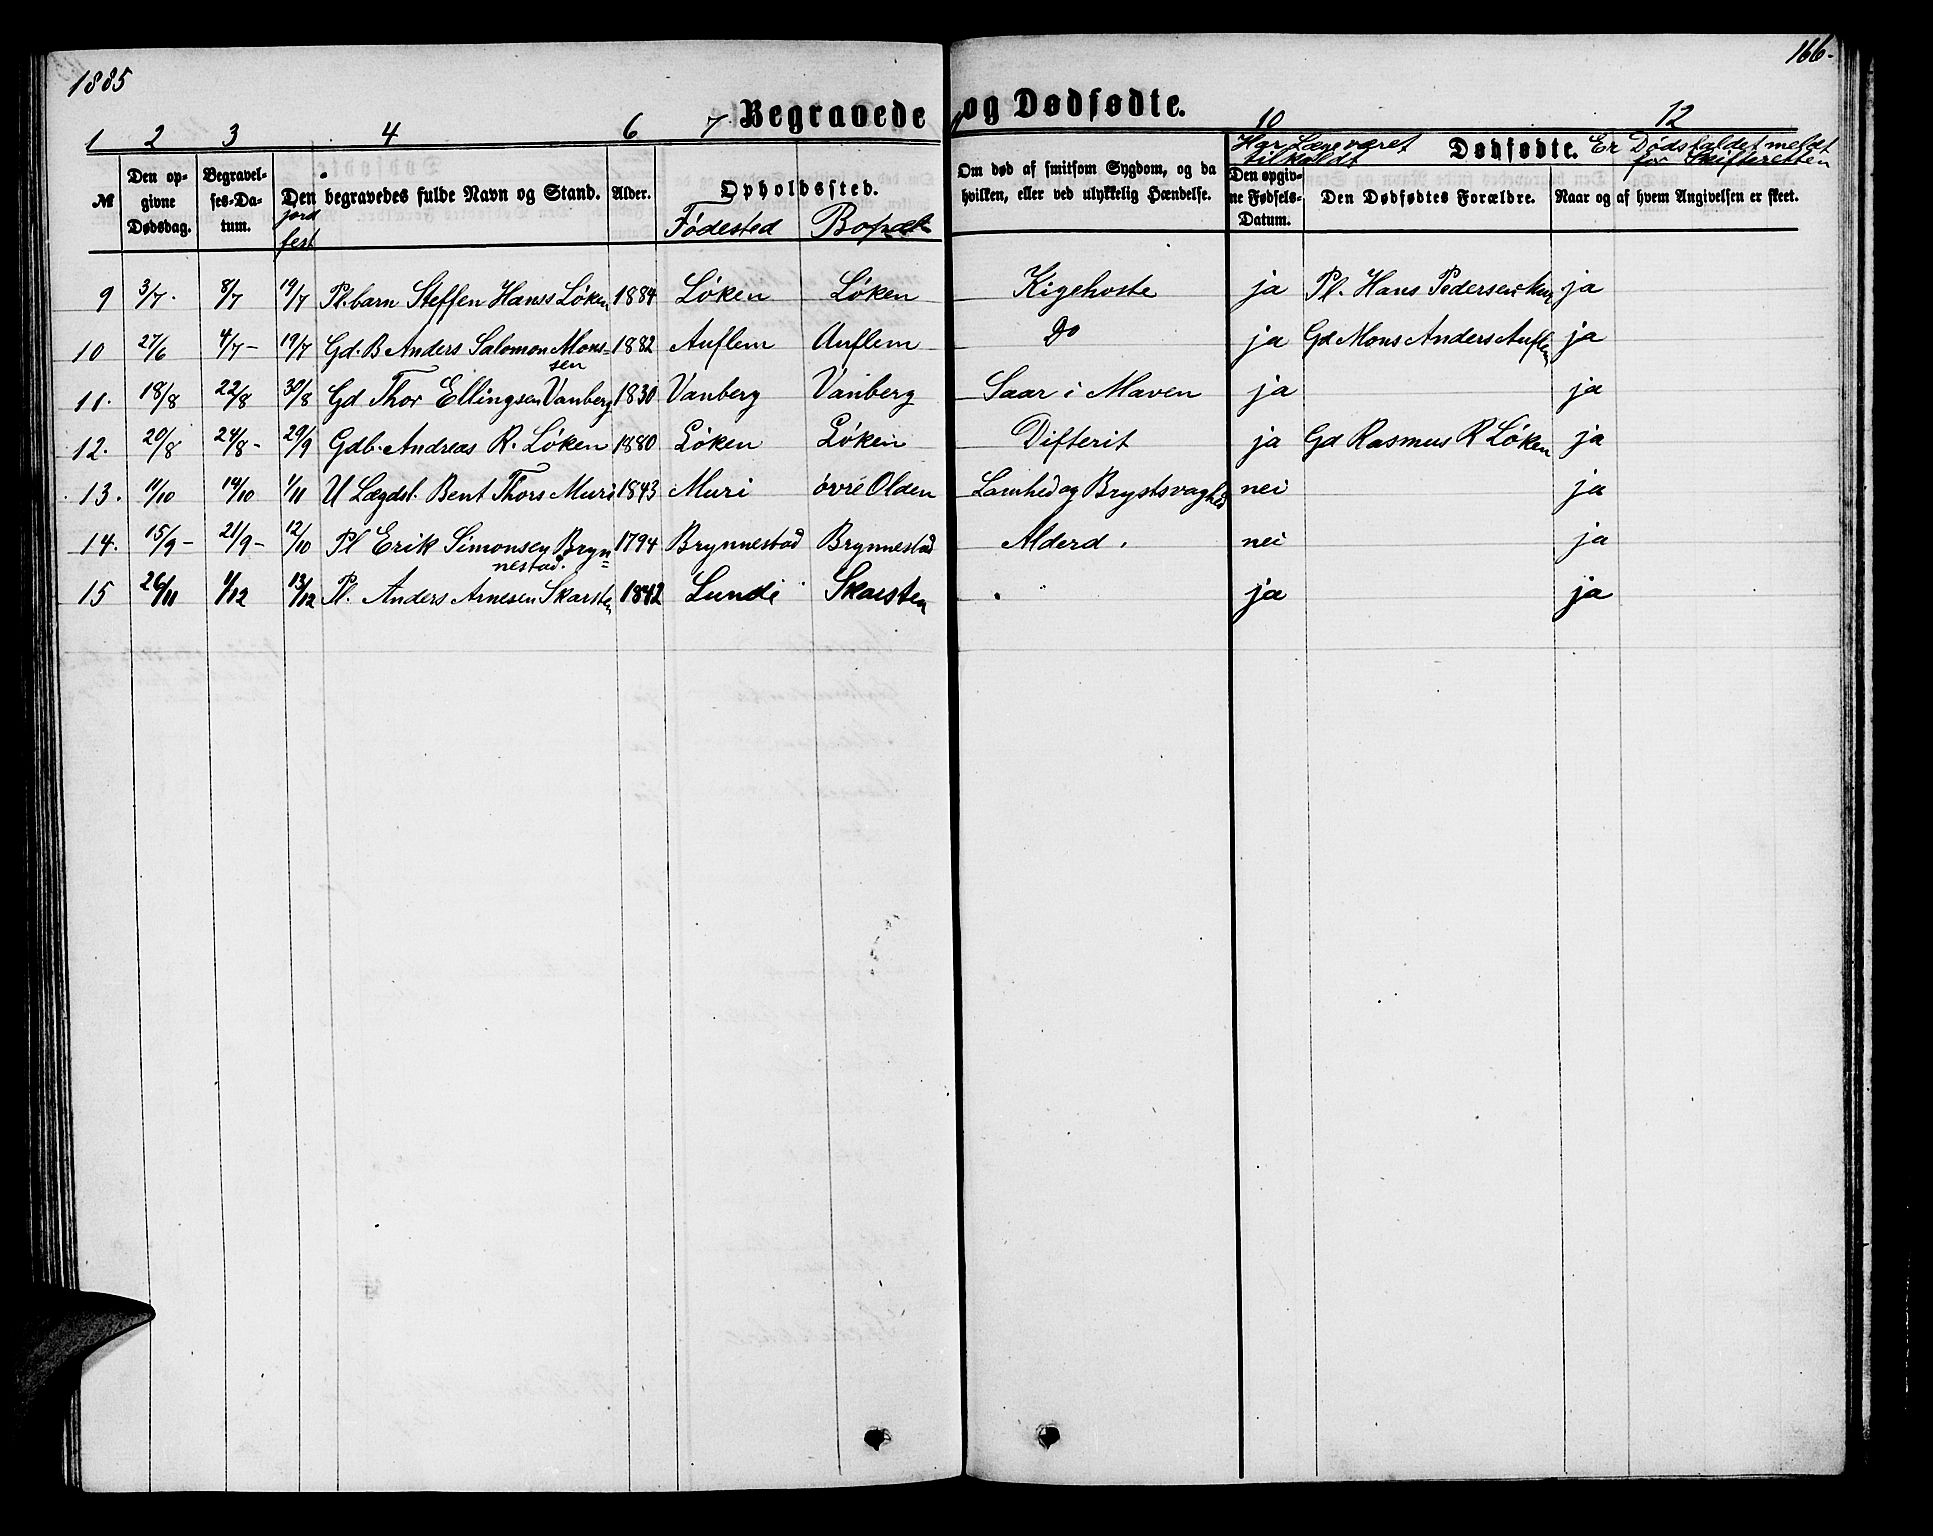 1885
166.
Begravede og Dødfødte.
1 2 3 4 6 7 10 12
Har Læge været tilkaldt
Dødfødte.
Er Dødsfaldet meldt for Skifteretten
№
Den opgivne Dødsdag.
Begravelses-Datum.
jordfest
Den begravedes fulde Navn og Stand.
Alder.
Opholdssted.
Fødested
Bopæl
Om død af smitsom Sygdom, og da hvilken, eller ved ulykkelig Hændelse.
Den opgivne Fødsels-Datum.
Den Dødfødtes Forældre.
Naar og af hvem Angivelsen er skeet.
9 3/7. 8/7 19/7 Pl.barn Steffen Hanss Løken 1884 Løken Løken Kigehoste ja Pl. Hans Pedersen ja
10 27/6 4/7- 19/7 Gd. B Anders Salomon Monssen 1882 Auflem Auflem Do ja Gd Mons Anders Auflem ja
11. 18/8 22/8 30/8 Gd Thor Ellingsen Vanberg 1830 Vanberg Vanberg Saar i Maven ja ja
12. 20/8 24/8- 29/9 Gdb. Andreas R. Løken 1880 Løken Løken Difterit ja Gd Rasmus R Løken ja
13. 11/10 14/10 1/11 U Lægdsl. Bent Thors Muri 1843 Muri øvre Olden Lamhed og Brystsvaghed nei ja
14. 15/9- 21/9- 12/10 Pl Erik Simonsen Brynnestad. 1794 Brynnestad Brynnestad Alderd. nei ja
15 26/11 1/12 13/12 Pl. Anders Arnesen Skarsten 1842 Lunde Skarsten . ja ja